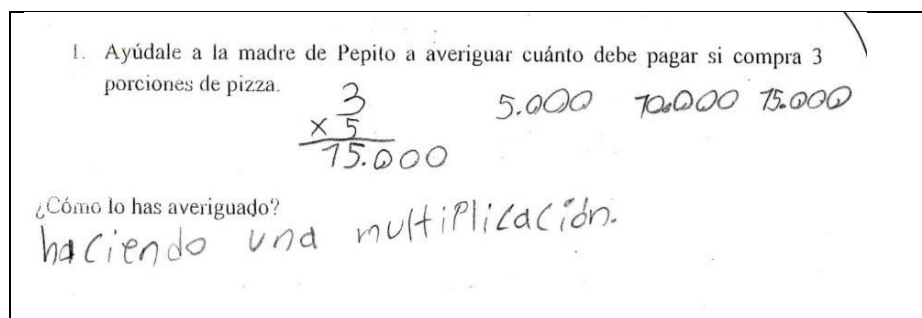 1. Ayúdale a la madre de Pepito a averiguar cuánto debe pagar si compra 3
porciones de pizza.
3
5.000 10.000 15.000
x 5
15.000
¿Cómo lo has averiguado?
haciendo una multiplicación.